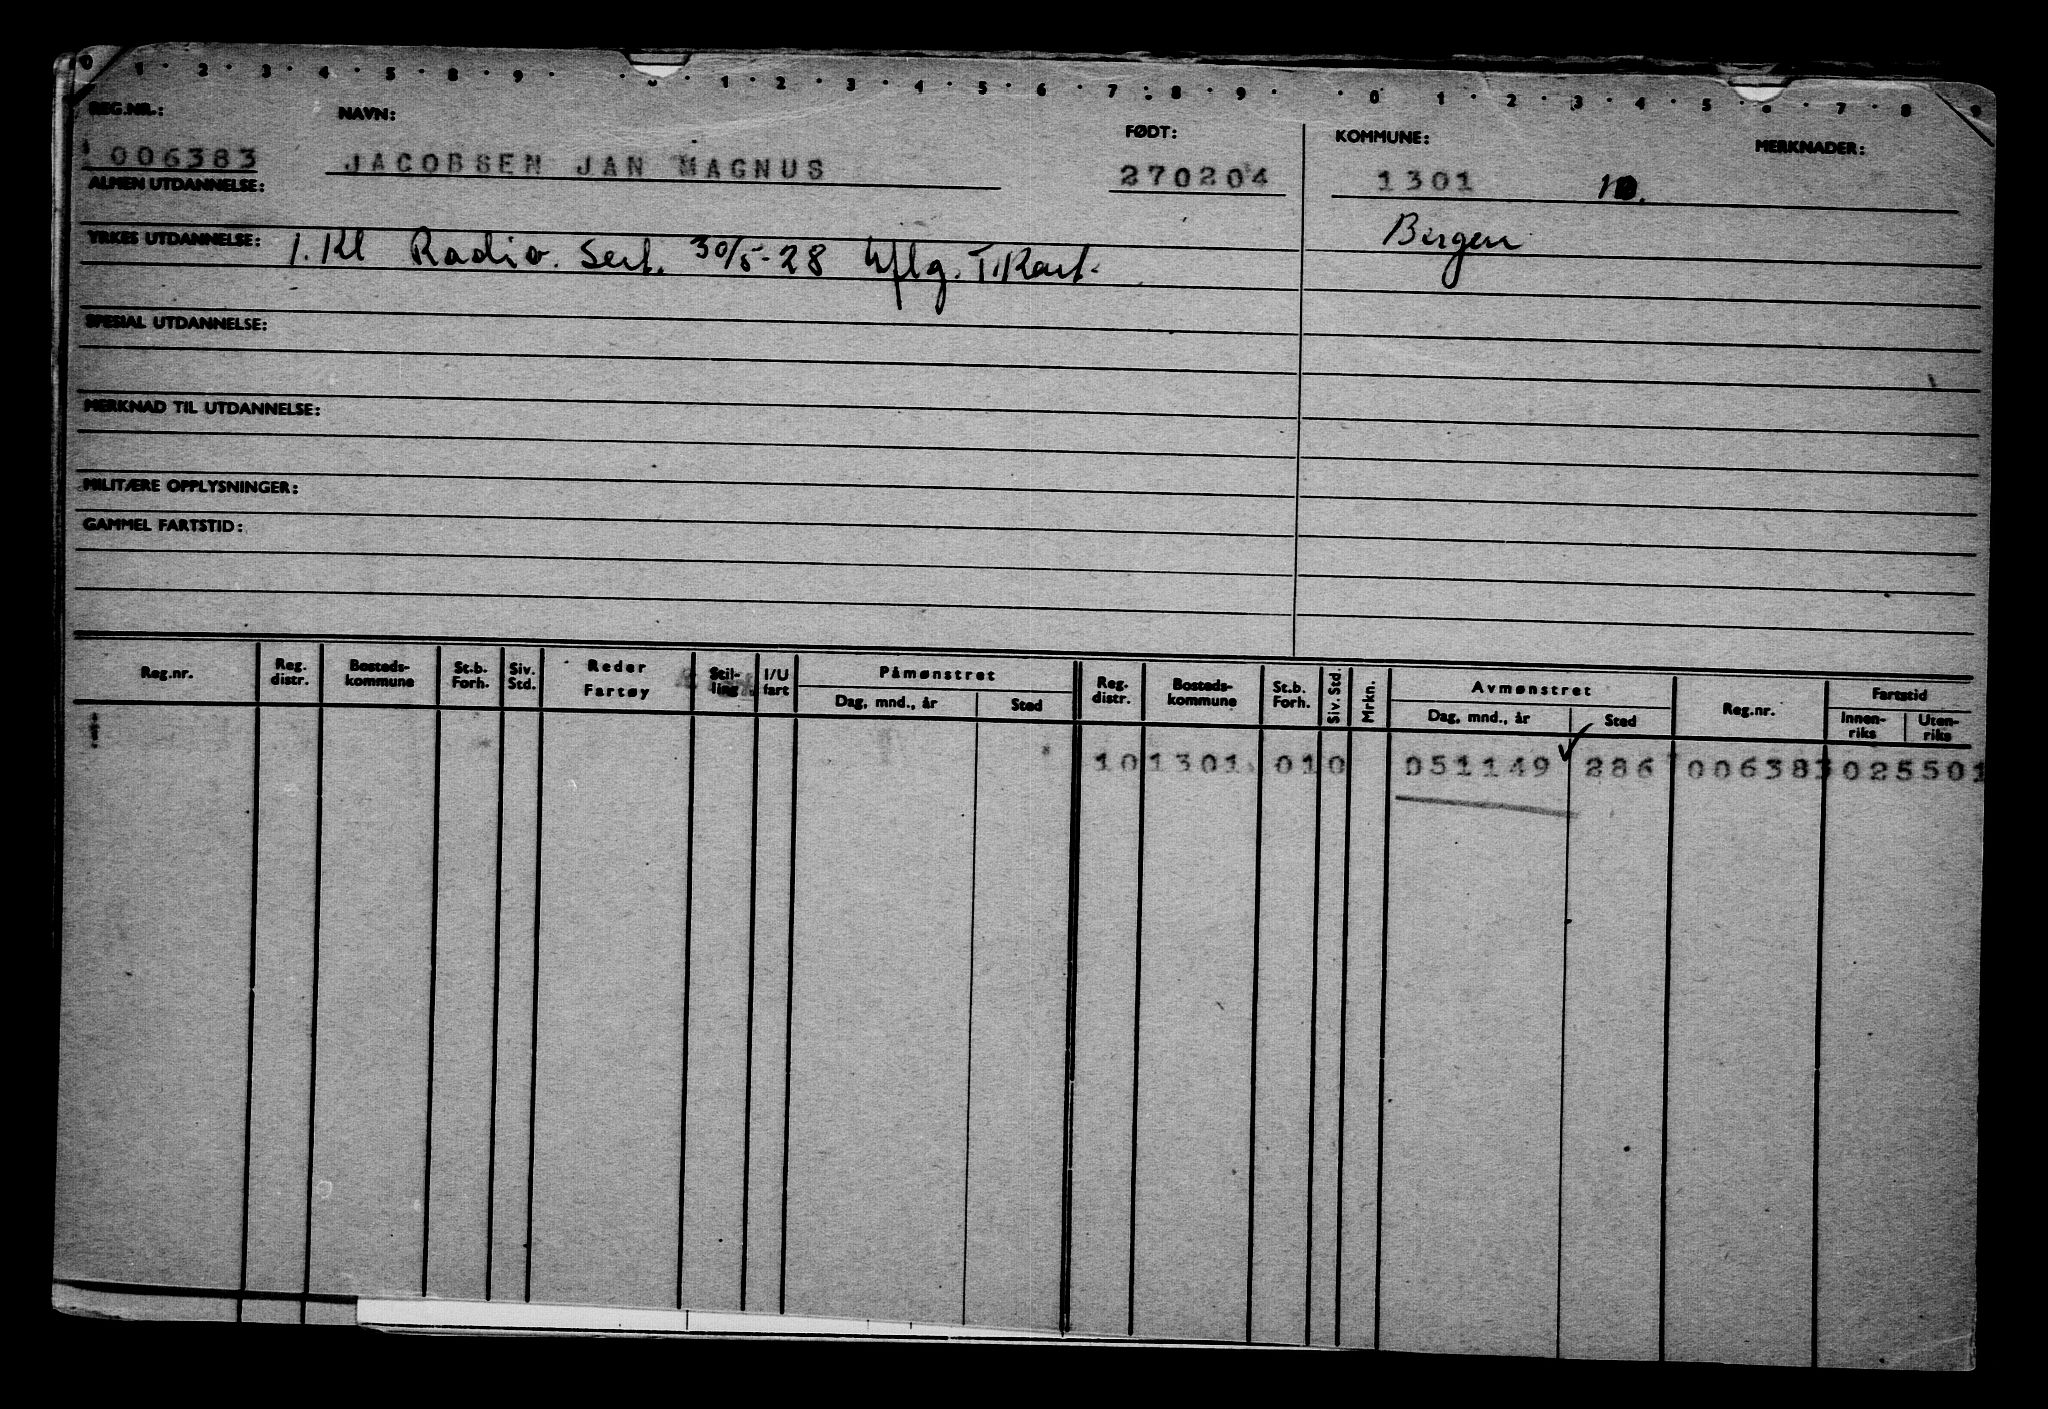 0 1 2 3 4 5 8 9 1 2 3 4 5 6 7 8 9 0 1 2 3 4 5 7 8 9
REG.NR.: NAVN: FØDT: KOMMUNE: MERKNADER:
006383 JACOBSEN JAN MAGNUS 270204 1301
ALMEN UTDANNELSE:
Bergen
YRKES UTDANNELSE: 1. Kl Radio. Sert. 30/5-28 Uflg. T.Kart.
SPESIAL UTDANNELSE:
MERKNAD TIL UTDANNELSE:
MILITÆRE OPPLYSNINGER:
GAMMEL FARTSTID:
Reg.nr. Reg. distr. Bosteds- kommune St.b. Forh. Siv. Std. Reder Fartøy Stil- ling I/U fart Påmønstret Dag, mnd., år Sted Reg. distr. Bosteds- kommune St.b. Forh. Siv. Std. Mrkn. Avmønstret Dag, mnd., år Sted Reg.nr. Fartstid Innen- riks Uten- riks
10 1301 01 0 051149 286 006383 025501